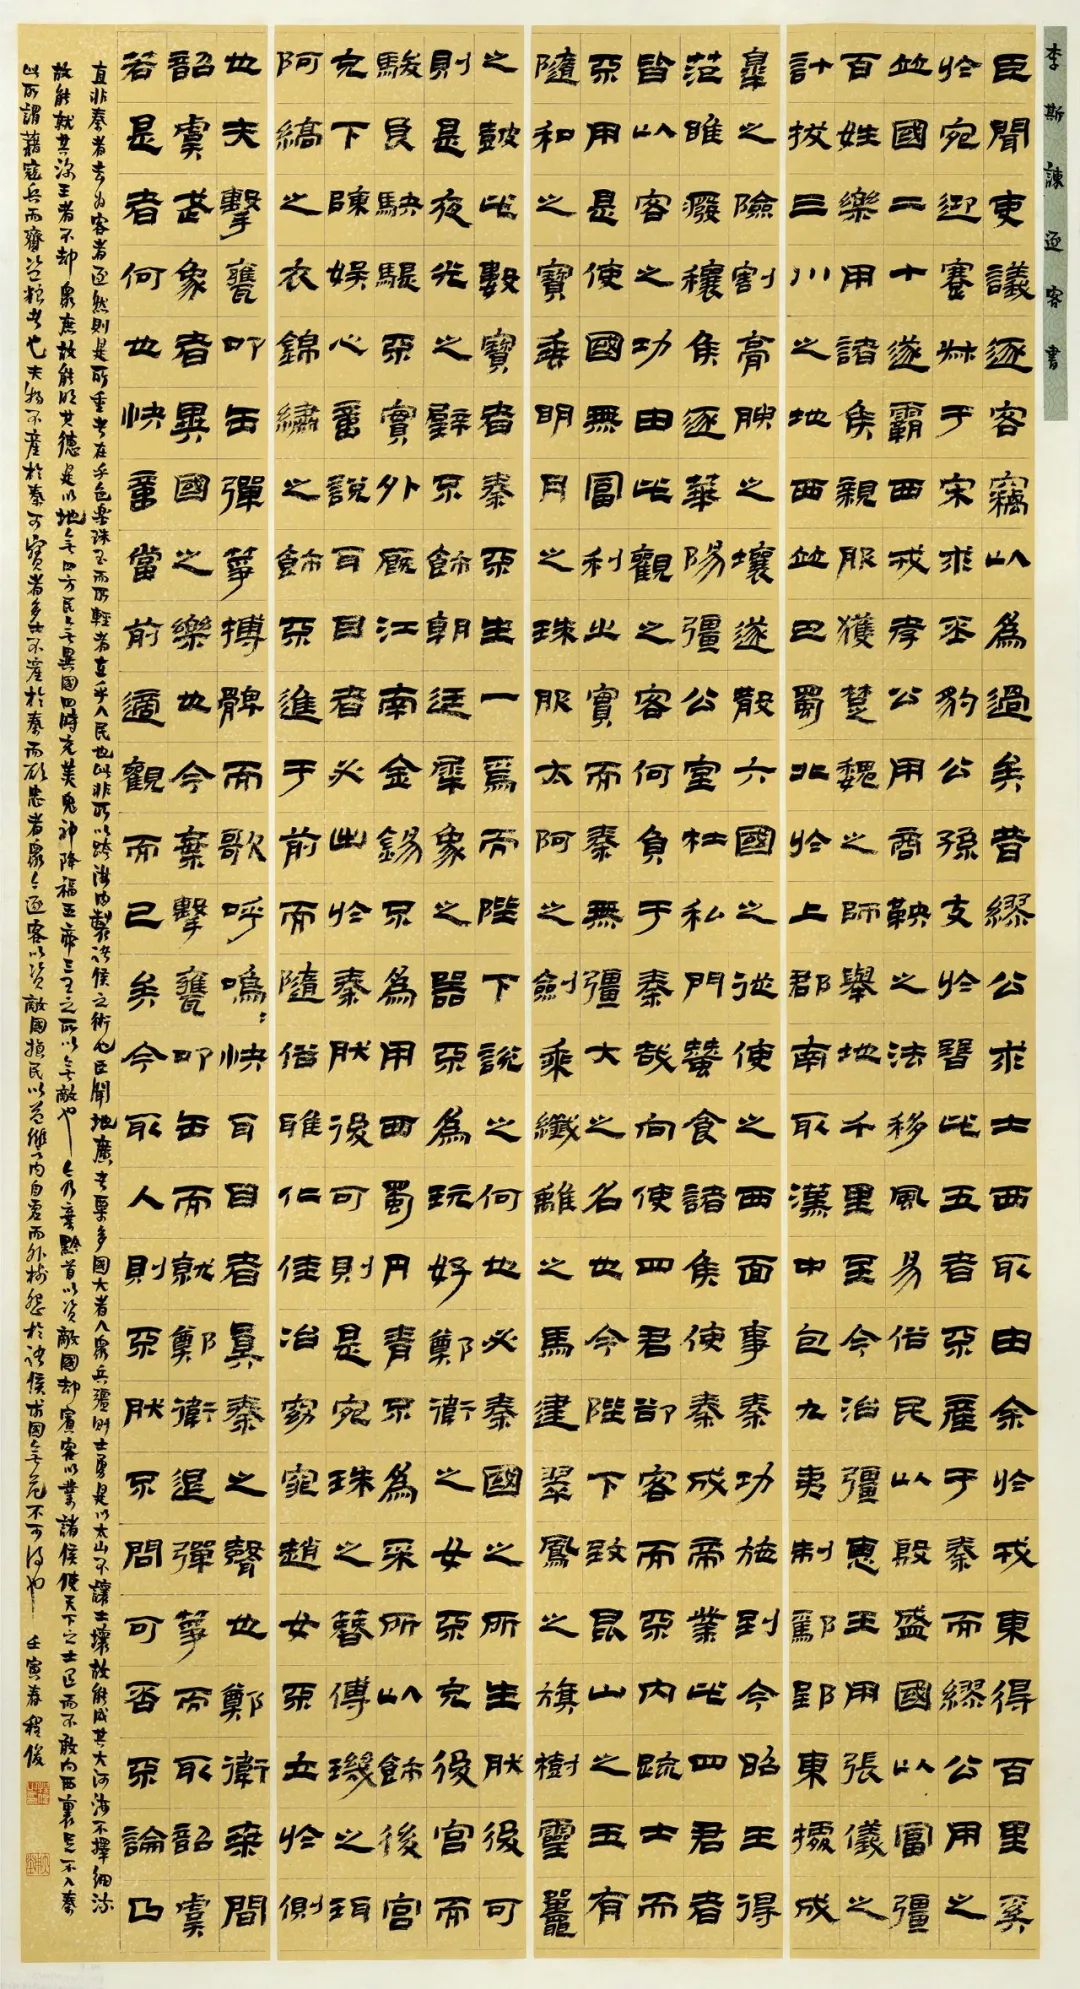 李斯諫逐客書
臣聞吏議逐客竊以為過矣昔繆公求士西取由余於戎東得百里奚
於宛迎蹇叔于宋求丕豹公孫支於晉此五者不產于秦而繆公用之
並國二十遂霸西戎孝公用商鞅之法移風易俗民以殷盛國以富彊
百姓樂用諸侯親服獲楚魏之師舉地千里至今治彊惠王用張儀之
計拔三川之地西並巴蜀北於上郡南取漢中包九夷制鄢郢東據成
皋之險割膏腴之壤遂散六國之從使之西面事秦功施到今昭王得
范雎廢穰侯逐華陽彊公室杜私門蠶食諸侯使秦成帝業此四君者
皆以客之功由此觀之客何負于秦哉向使四君卻客而不內疏士而
不用是使國無富利之實而秦無彊大之名也今陛下致昆山之玉有
隨和之寶垂明月之珠服太阿之劍乘纖離之馬建翠鳳之旗樹靈鼉
之鼓此數寶者秦不生一焉而陛下說之何也必秦國之所生然後可
則是夜光之璧不飾朝廷犀象之器不為玩好鄭衛之女不充後宮而
駿良駃騠不實外廄江南金錫不為用西蜀丹青不為采所以飾後宮
充下陳娛心意說耳目者必出於秦然後可則是宛珠之簪傅璣之珥
阿縞之衣錦繡之飾不進于前而隨俗雅化佳冶窈窕趙女不立於側
也夫擊甕叩缶彈箏搏髀而歌呼嗚〻快耳目者真秦之聲也鄭衛桑間
韶虞武象者異國之樂也今棄擊甕叩缶而就鄭衛退彈箏而取韶虞
若是者何也快意當前適觀而已矣今取人則不然不問可否不論曲
直非秦者去為客者逐然則是所重者在乎色樂珠玉而所輕者在乎人民也此非所以跨海內製諸侯之術也臣聞地廣者粟多國大者人眾兵彊則士勇是以太山不讓土壤故能成其大河海不擇細流
故能就其深王者不卻眾庶故能明其德是以地無四方民無異國四時充美鬼神降福五帝三王之所以無敵也今乃棄黔首以資敵國卻賓客以業諸侯使天下之士退而不敢向西裹足不入秦
此所謂藉寇兵而齎盜糧者也夫物不產於秦可寶者多士不產於秦而願忠者眾今逐客以資敵國損民以益讎內自虛而外樹怨於諸侯求國無危不可得也 壬寅春程俊